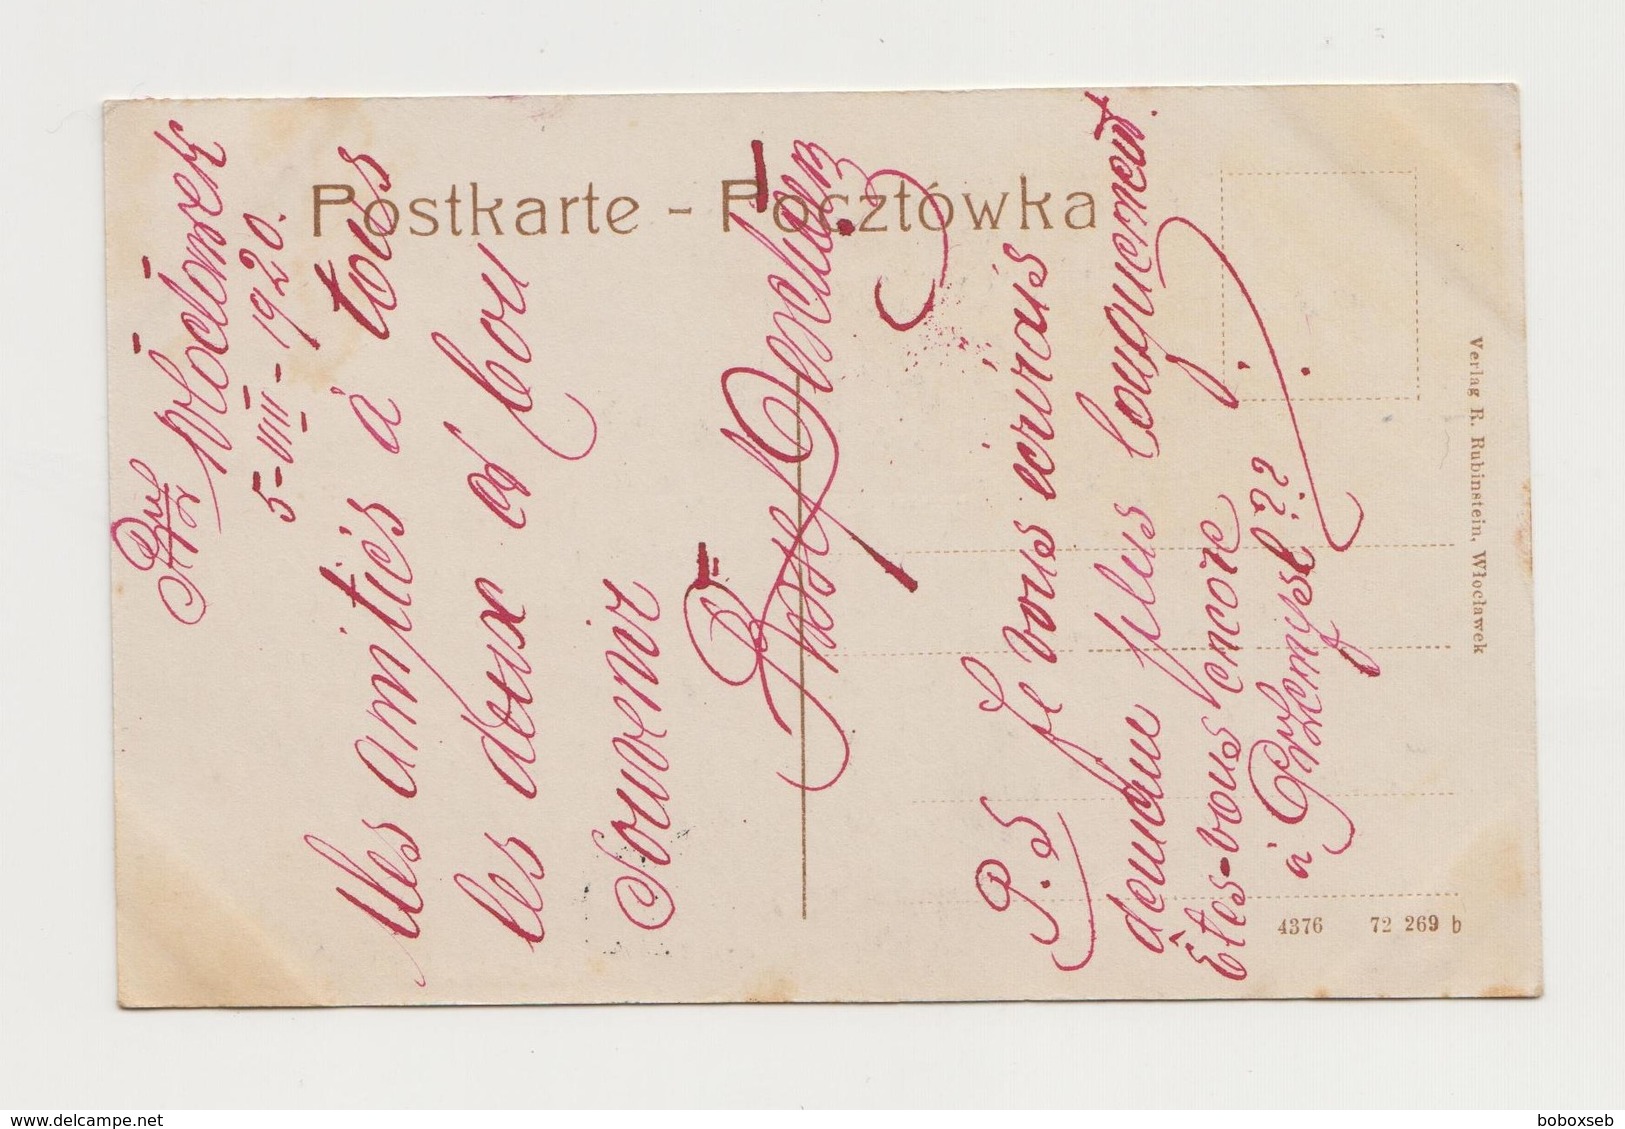 Postkarte - Pocztówka
Włocławek
5-VIII-1920.
Mes amitiés à tous
les deux et bon
Souvenir
P.S Je vous écrirais
demain plus longuement.
Êtes-vous encore
à Przemysl???
Verlag R. Rubinstein, Włocławek
4376 72 269 b
delcampe.net
boboxseb